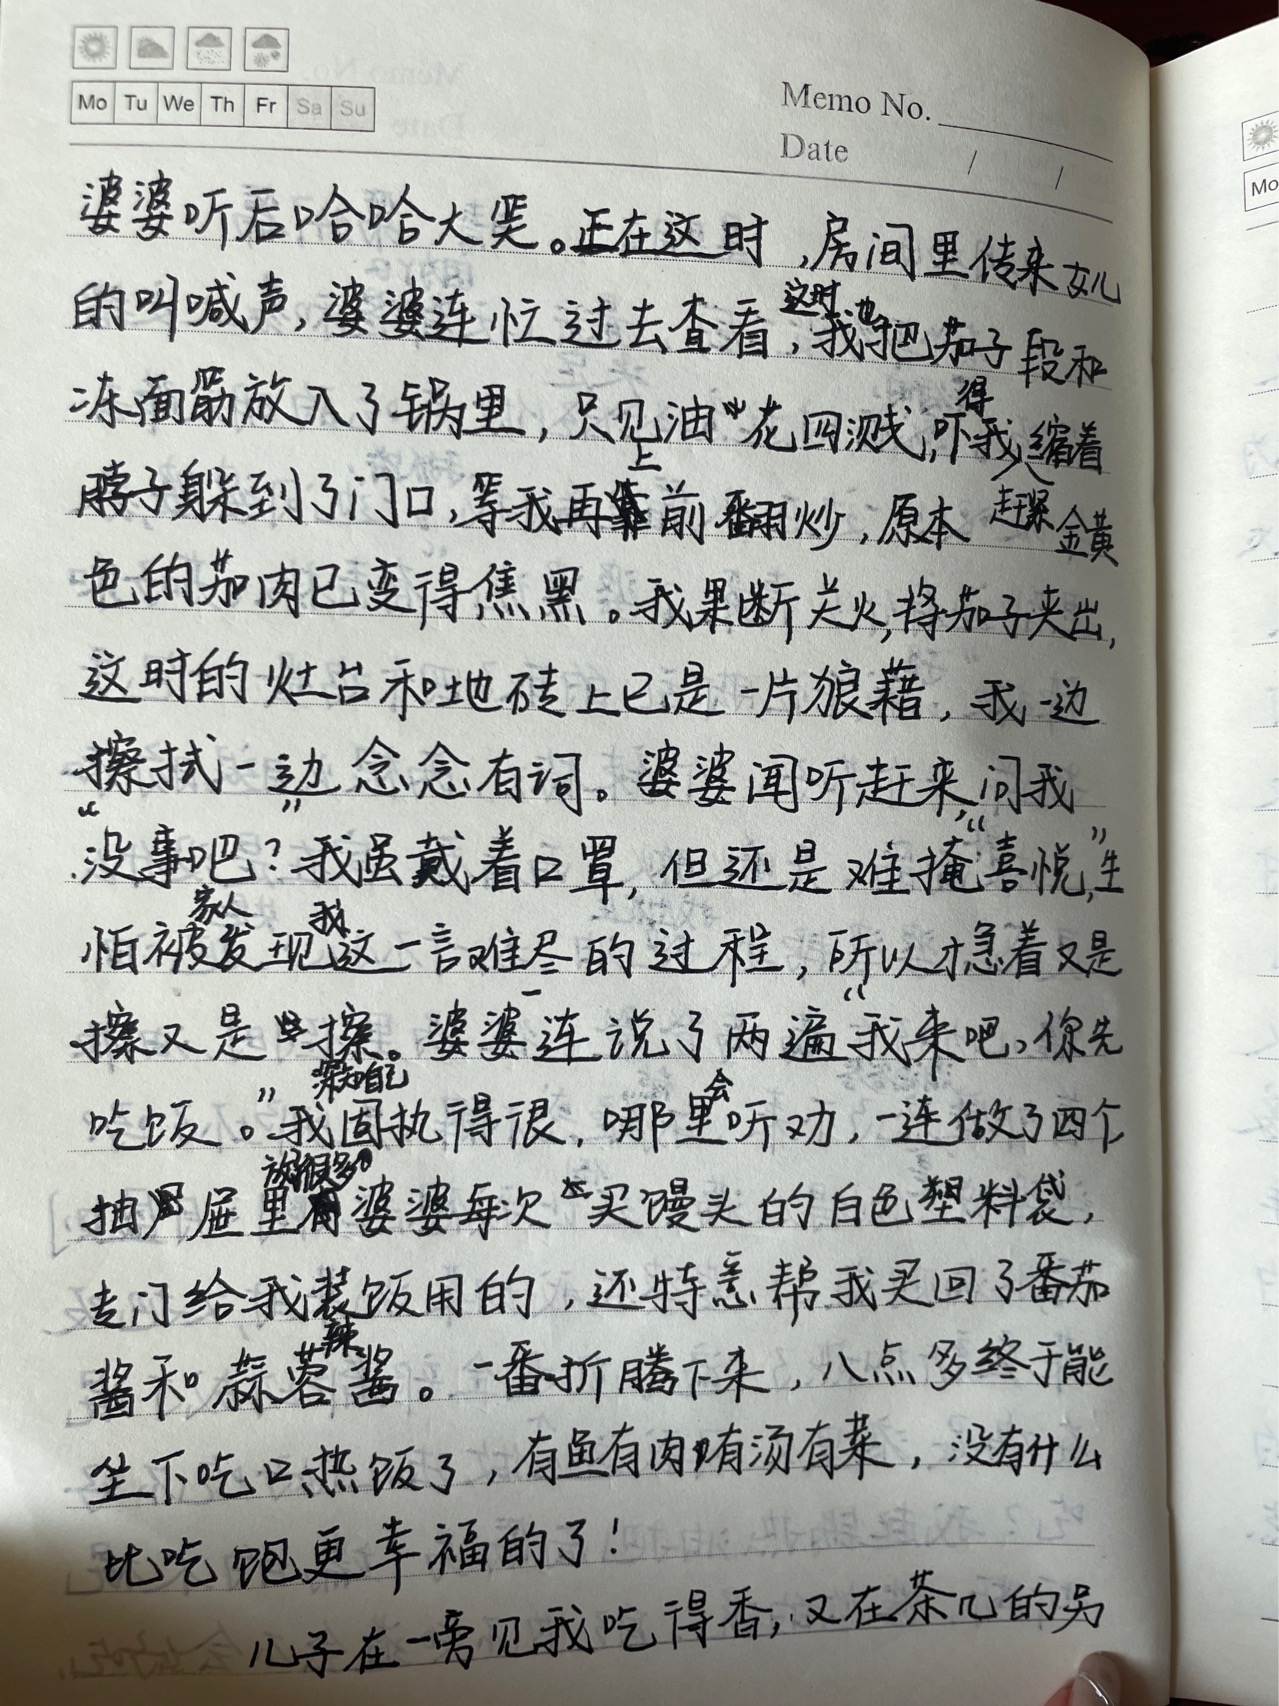 Mo Tu We Th Fr Sa Su
Memo No.
Date / /
Mo
婆婆听后哈哈大笑。正在这时,房间里传来女儿
的叫喊声,婆婆连忙过去查看,这时,我也把茄子段和
冻面筋放入了锅里,只见油花四溅,吓得我缩着
脖子躲到了门口,等我再上前翻炒,原本金黄
赶紧
色的茄肉已变得焦黑。我果断关火,将茄子夹出,
这时的灶台和地砖上已是一片狼藉,我一边
擦拭一边念念有词。婆婆闻听赶来,问我
“没事吧?”我虽戴着口罩,但还是难掩“喜悦”,生
怕被家人发现我这一言难尽的过程,所以才急着又是
擦又是擦。婆婆连说了两遍“我来吧,你先
吃饭。”我深知自己固执得很,哪里会听劝,一连做了四个
抽屉里放很多婆婆每次买馒头的白色塑料袋,
专门给我装饭用的,还特意帮我买回了番茄
酱和蒜蓉辣酱。一番折腾下来,八点多终于能
坐下吃口热饭了,有鱼有肉有汤有菜,没有什么
比吃饱更幸福的了!
儿子在一旁见我吃得香,又在茶几的另